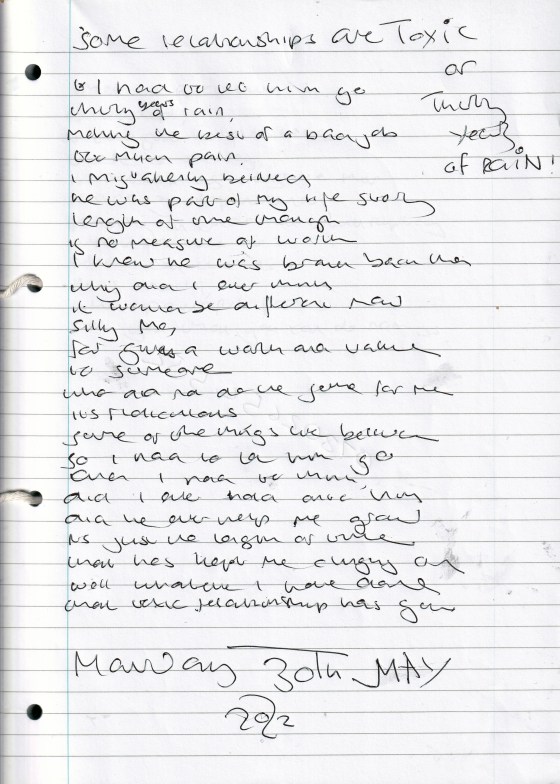 Some relationships are Toxic
or
Thirty
years
of PAIN!
So I had to let him go
thirty years of rain,
Making the best of a bad job
too Much pain.
I Misguidedly believed
he was part of my life story
length of time though
is no measure of worth
I knew he was broken back then
why did I ever think
it would be different now
Silly Me,
for giving a worth and value
to someone
who did not do the same for me
its ridiculous
some of the things we believe
So I had to let him go
and I had to think,
did I ever need
did he ever help me grow
its just the length of time
that has kept me clinging on
well whatever I have done
that toxic relationship has gone
Monday 30th MAY
2022